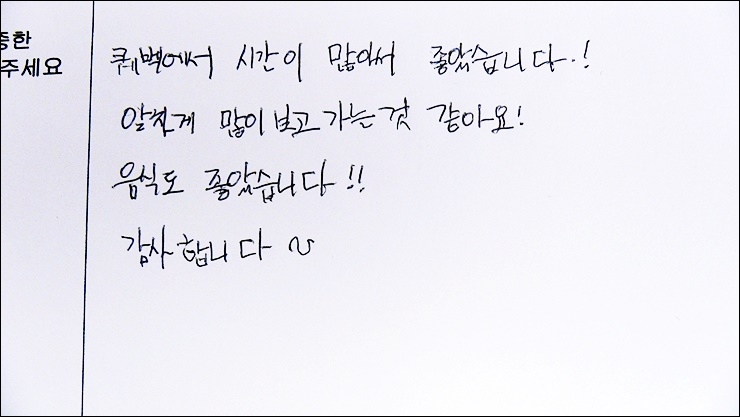 중한
주세요
퀘벡에서 시간이 많아서 좋았습니다.!
알차게 많이보고 가는것 같아요!
음식도 좋았습니다!!
감사합니다 ~